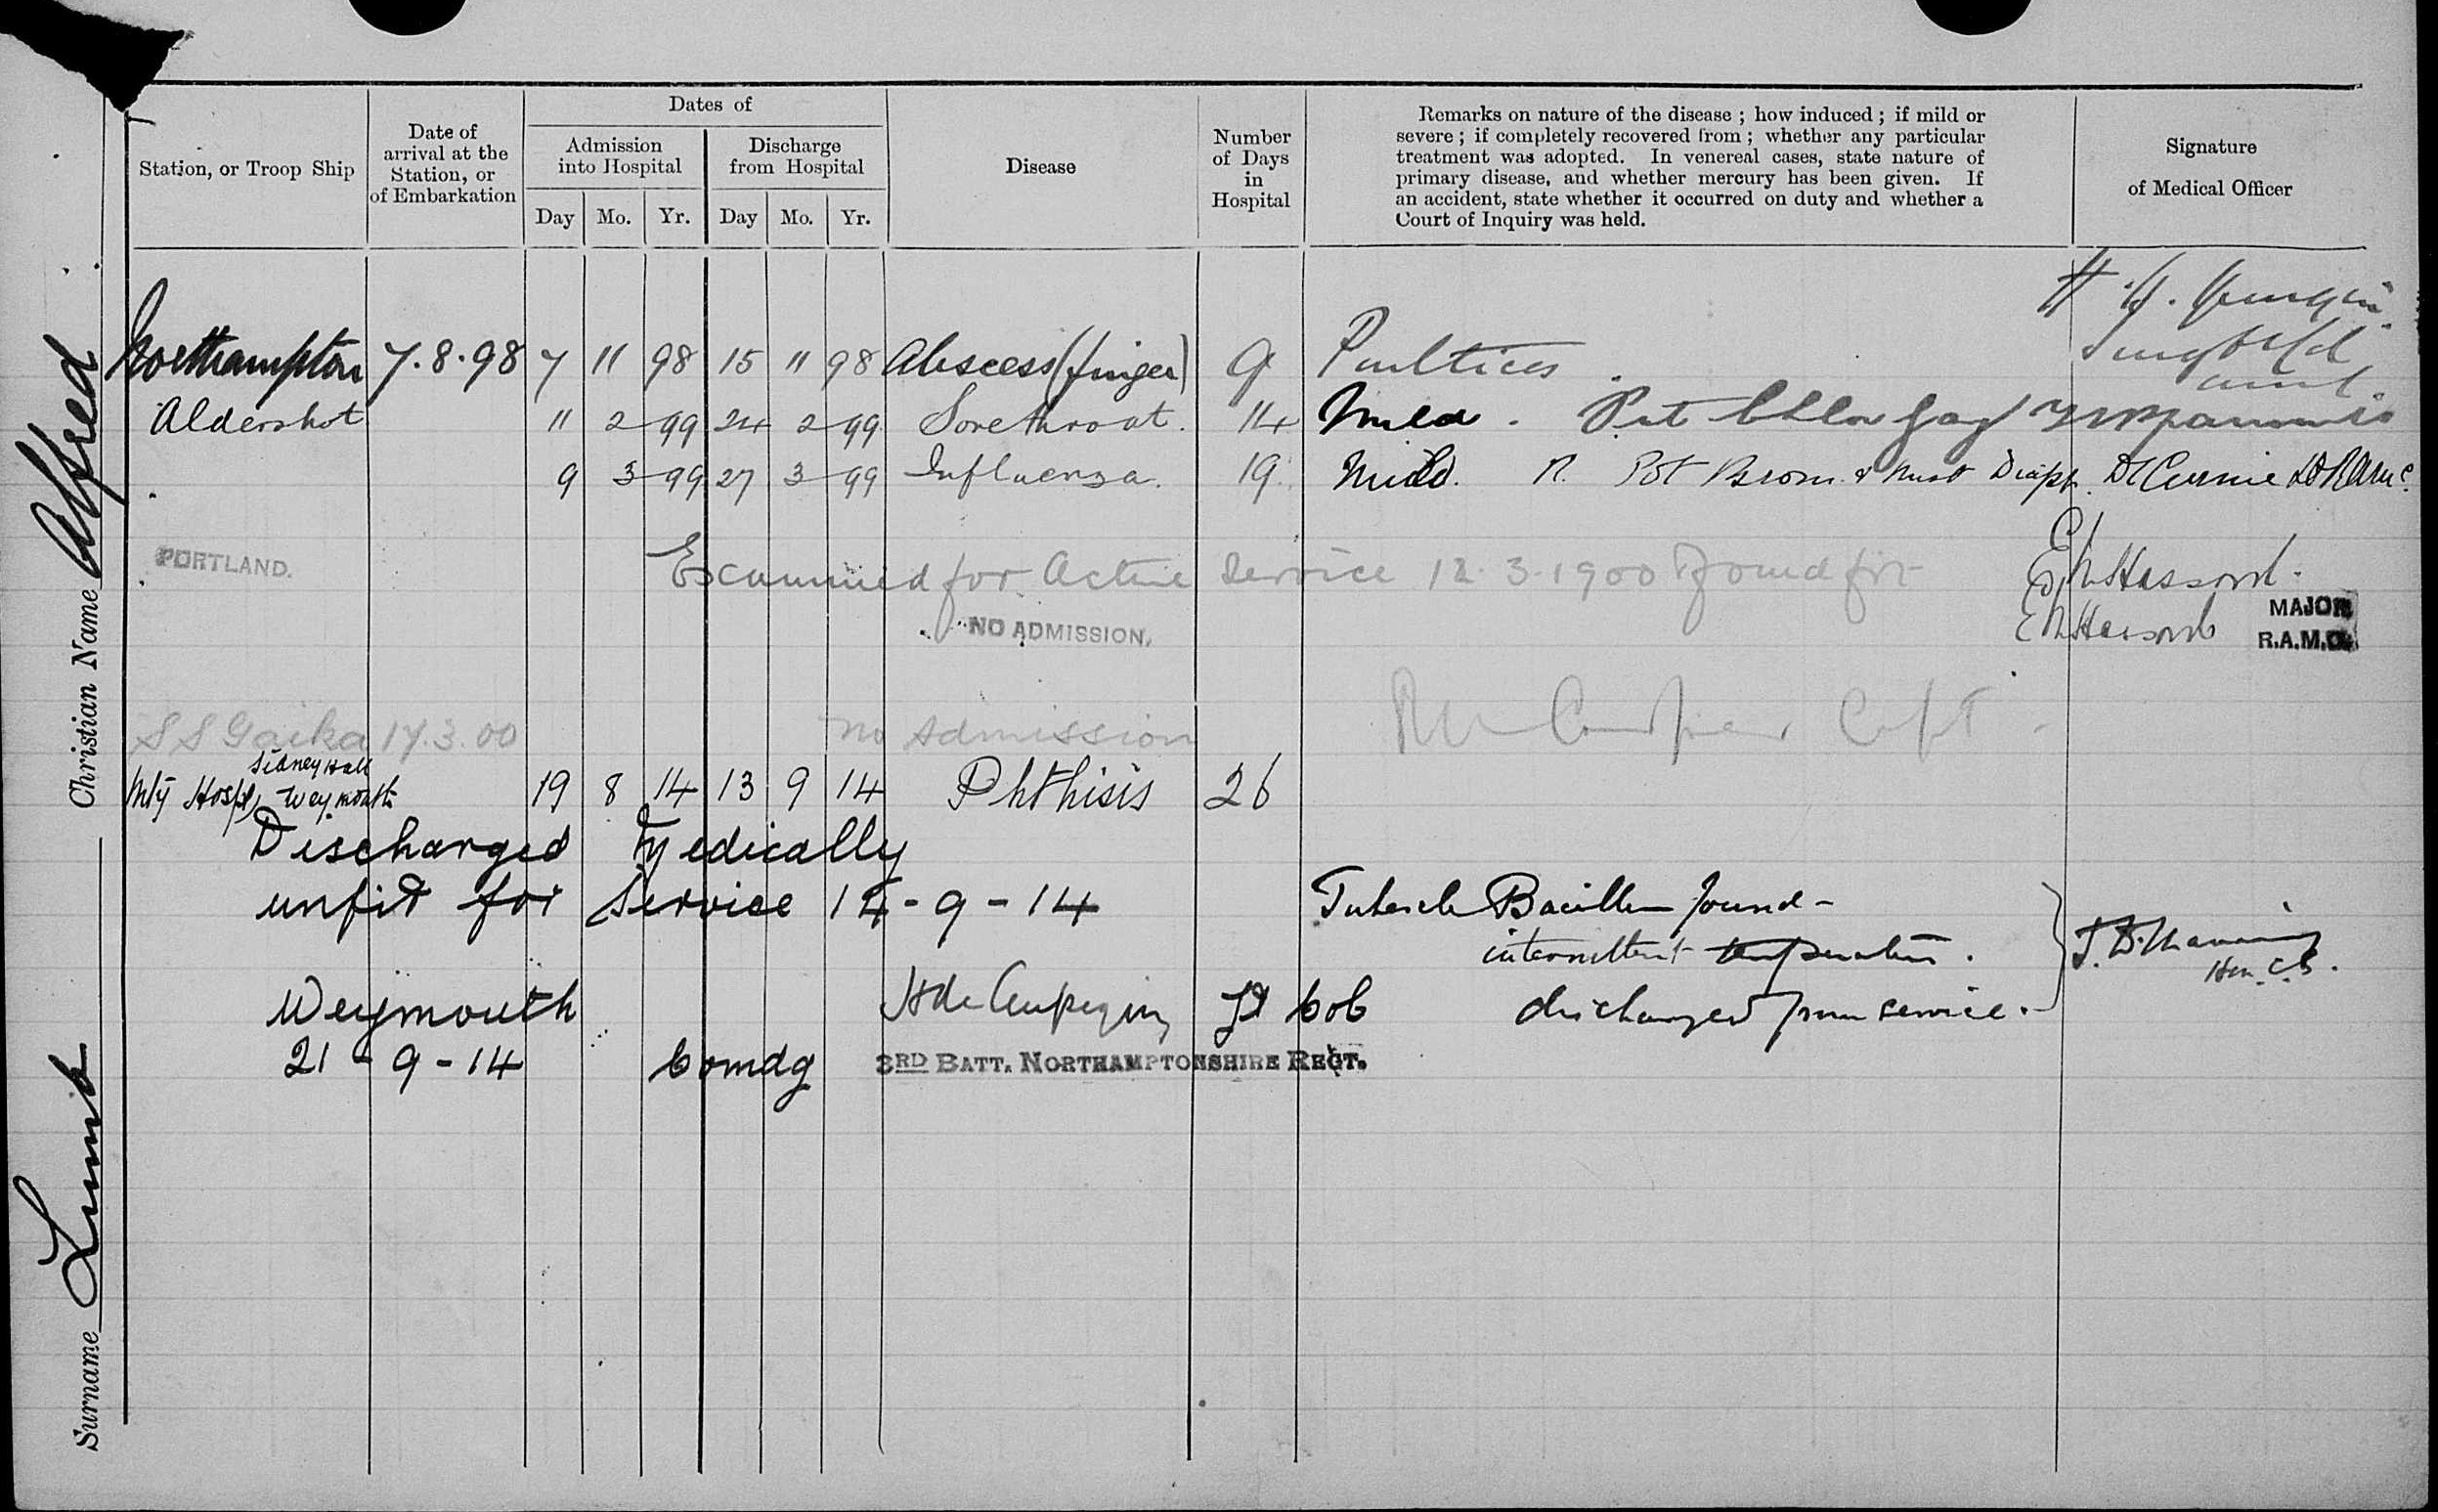 Surname Lumb Christian Name Alfred
Station, or Troop Ship
Date of
arrival at the
Station, or
of Embarkation
Dates of
Admission
into Hospital
Discharge
from Hospital
Day Mo. Yr. Day Mo. Yr.
Disease
Number
of Days
in
Hospital
Remarks on nature of the disease ; how induced ; if mild or
severe ; if completely recovered from ; whether any particular
treatment was adopted. In venereal cases, state nature of
primary disease, and whether mercury has been given. If
an accident, state whether it occurred on duty and whether a
Court of Inquiry was held.
Signature
of Medical Officer
Northampton 7.8.98 7 11 98 15 11 98 Abscess (finger) 9 Poultices
Aldershot 11 2 99 24 2 99 Sore throat. 14 Mild. Pot Chlor Garg
9 3 99 27 3 99 Influenza. 19. Mild. R. Pot Brom. &
PORTLAND. Examined for Active Service 12.3.1900 Found fit
NO ADMISSION. MAJOR
R.A.M.C.
S S Gaika 17.3.00 no admission Capt
Sidney Hall
Mty Hospl, Weymouth 19 8 14 13 9 14 Phthisis 26
Discharged Medically
unfit for Service 14-9-14 Tubercle Bacillus found -
intermittent temperature.
Weymouth Lt Col discharged from service.
21-9-14 Comdg 3RD BATT. NORTHAMPTONSHIRE REGT.